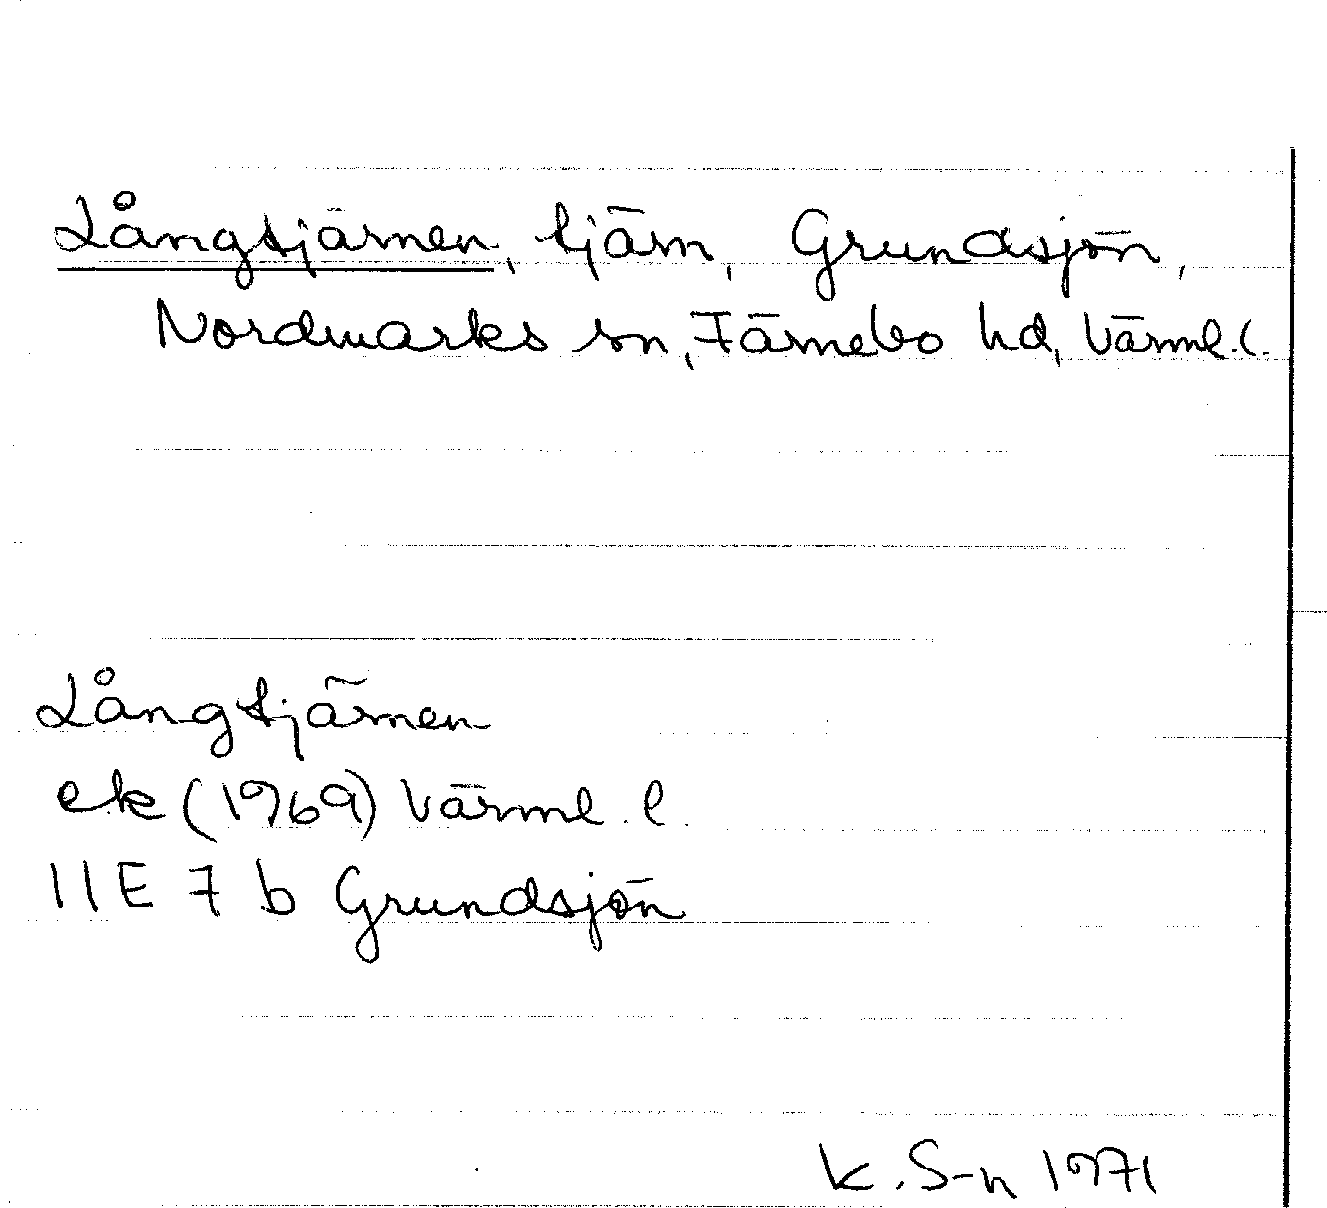 Långtjärnen, tjärn, Grundsjön,
Nordmarks sn, Färnebo hd, Värml. l.
Långtjärnen
ek (1969) Värml. l.
11E 7 b Grundsjön
K. S-n 1971